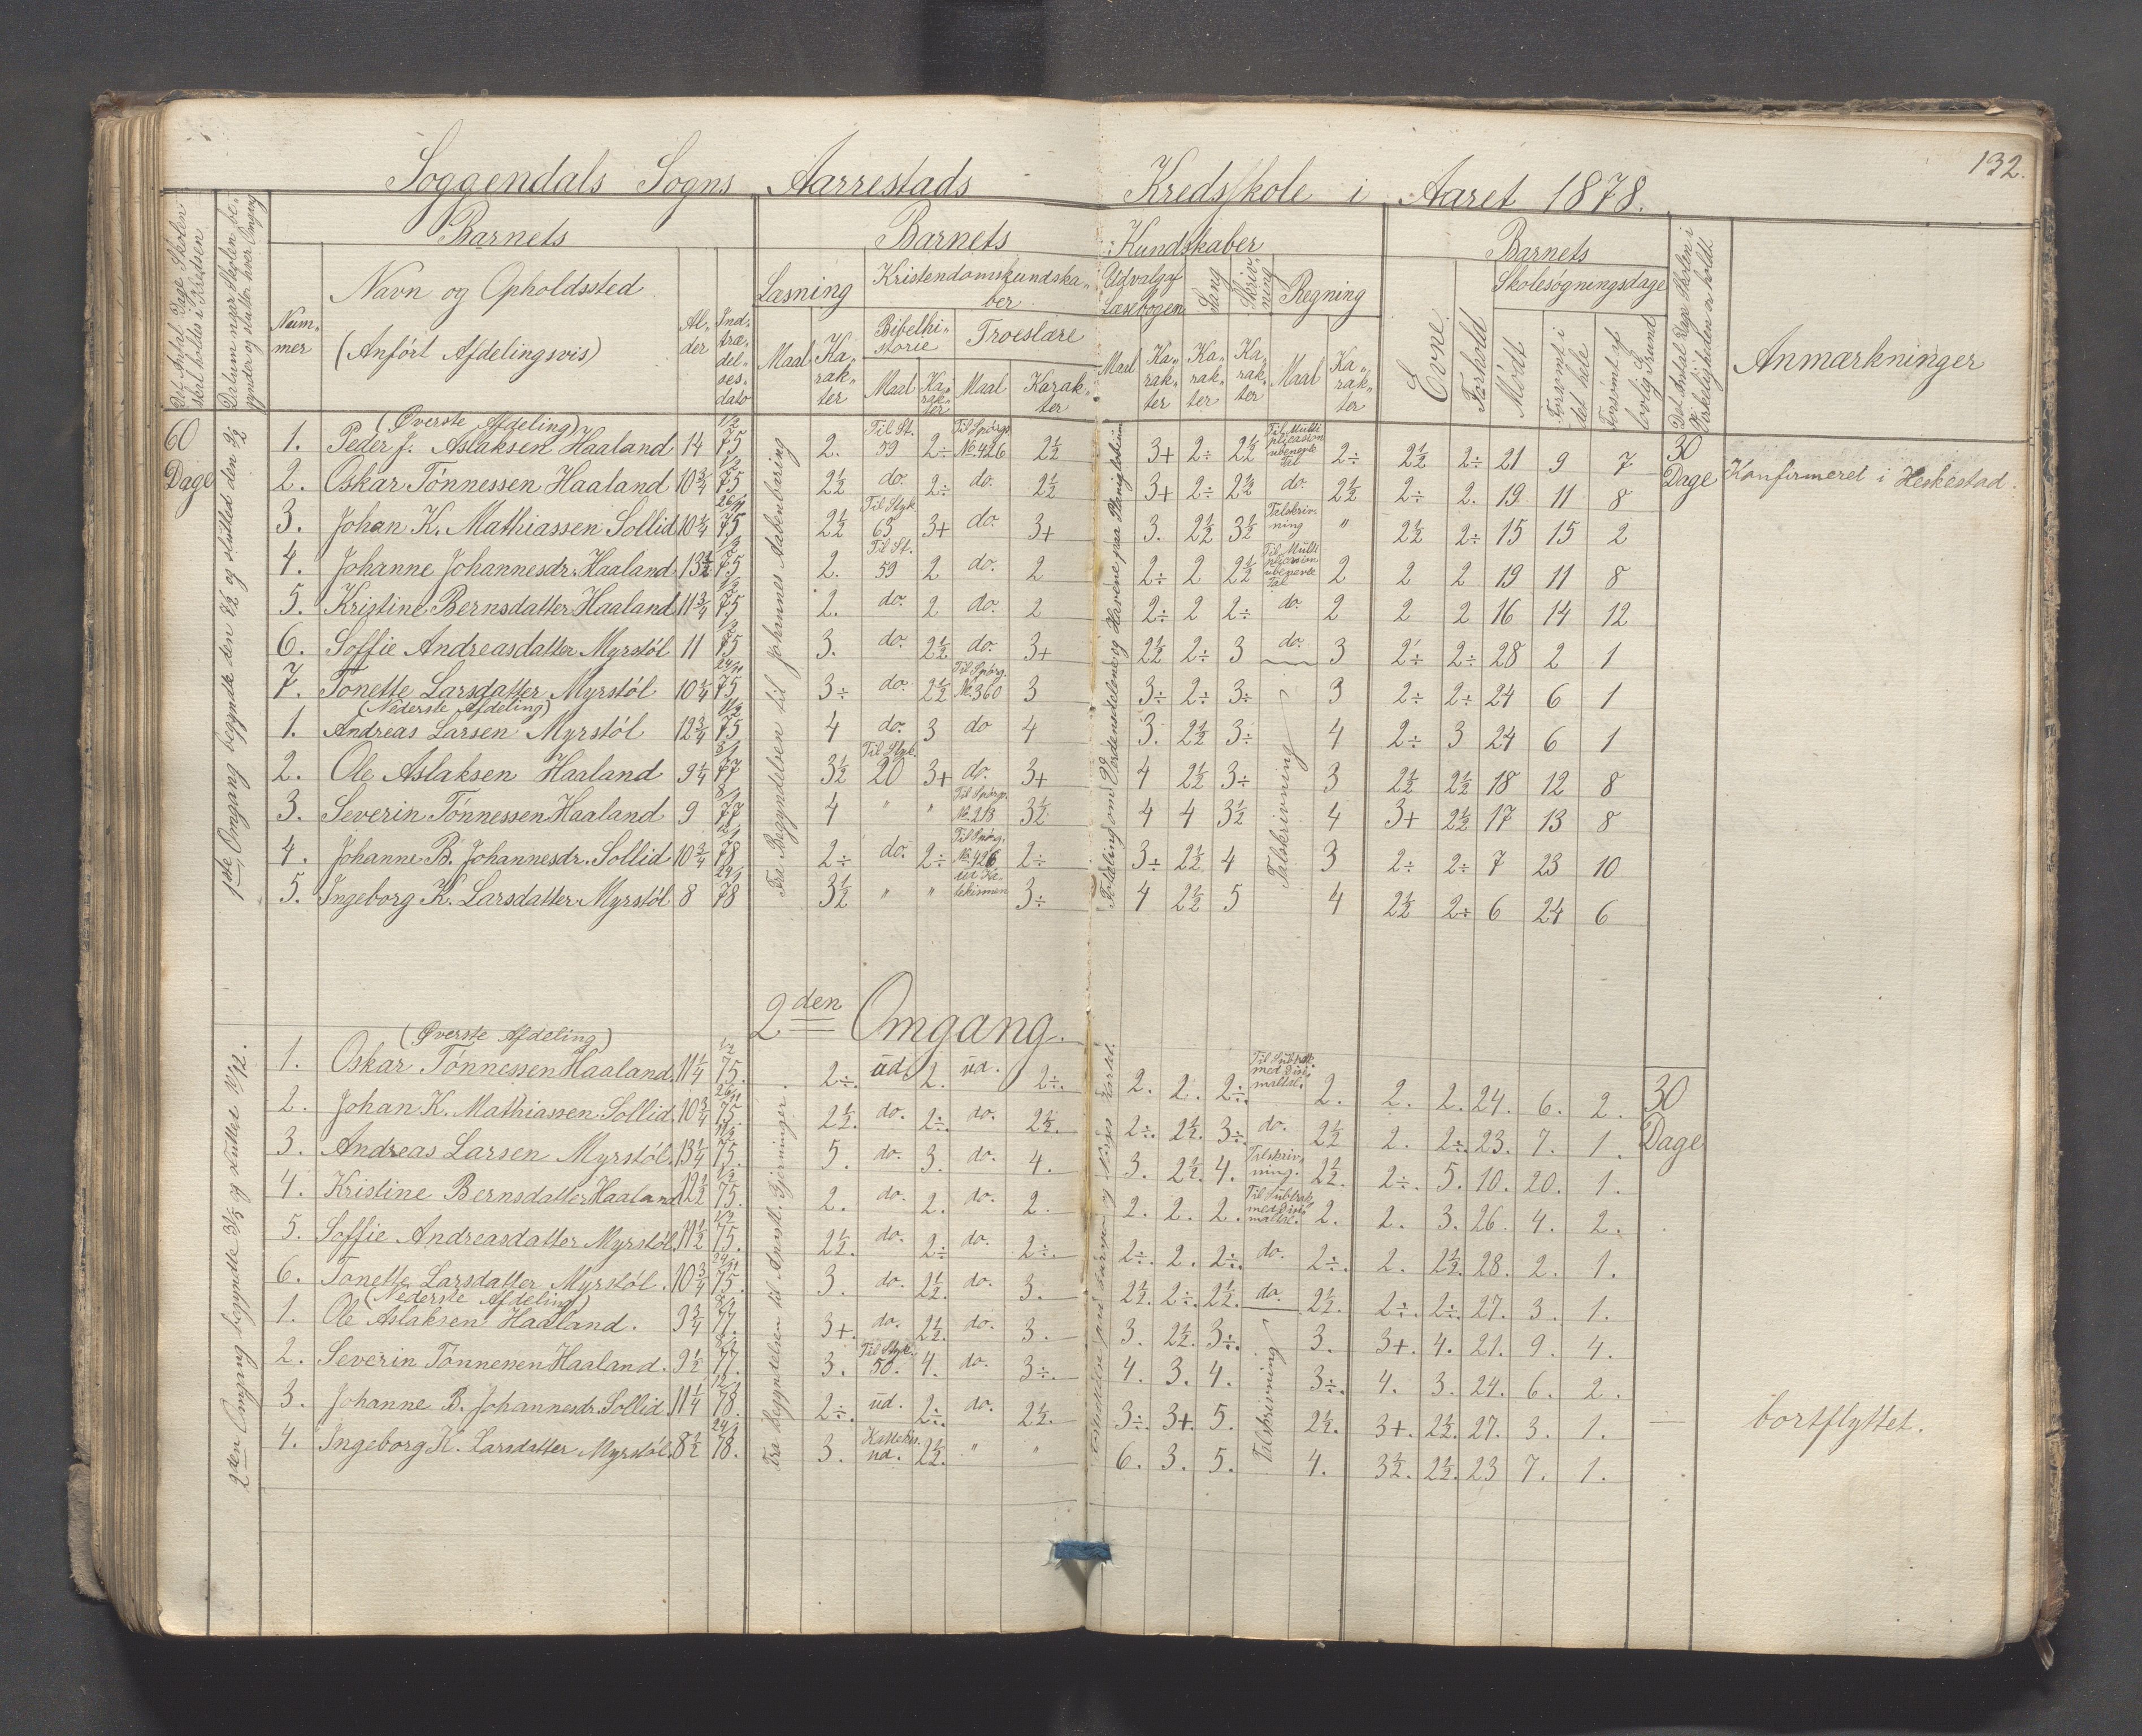 132.
Soggendals Sogns Aarrestads Kredsskole i Aaret 1878.
Det Antal Dage Skolen skal holdes i Kredsen
Datum naar Skolen begynder og slutter hver Omgang
Barnets
Nummer
Navn og Opholdssted
(Anført Afdelingsvis)
Alder
Indtrædelsesdato
Barnets Kundskaber
Læsning
Maal Karakter
Kristendomskundskaber
Bibelhistorie
Maal Karakter
Troeslære
Maal Karakter
Udvalg af Læsebogen
Maal Karakter
Sang
Karakter
Skrivning
Karakter
Regning
Maal Karakter
Barnets
Evne
Forhold
Skolesøgningsdage
Mødt
Forsømt i det hele
Forsømt af lovlig Grund
Det Antal Dage Skolen i Virkeligheden er holdt
Anmærkninger
60 Dage
1ste Omgang begyndte den 7/2 og sluttet den 9/2
Fra Begyndelsen til Johannes Aabenbaring
Talskrivning
(Øverste Afdeling)
1. Peder J. Aslaksen Haaland 14 1/2 75 2. Til St. 59 2÷ Til Spørg. No. 426 2½ 3+ 2÷ 2½ Til Multiplicasion ubenevnte Tal 2÷ 2½ 2÷ 21 9 7 30 Dage Konfirmeret i Heskestad.
2. Oskar Tønnessen Haaland 10¾ 1/2 75 2½ do. 2÷ do. 2½ 3+ 2÷ 2½ do. 2½ 2÷ 2. 19 11 8
3. Johan K. Mathiassen Sollid 10¼ 26/11 75 2½ Til Styk 63 3+ do. 3+ 3. 2½ 3½ Talskrivning " 2½ 2÷ 15 15 2
4. Johanne Johannesdr. Haaland 13½ 1/2 75 2. Til St. 59 2 do. 2 2÷ 2 2½ Til Multiplicasion ubenevte Tal 2 2 2 19 11 8
5. Kristine Bernsdatter Haaland 11¾ 1/2 75 2. do. 2 do. 2 2÷ 2 2÷ do. 2 2 2 16 14 12
6. Soffie Andreasdatter Myrstøl 11 1/2 75 3. do. 2½ do. 3+ 2½ 2÷ 3 do. 3 2÷ 2÷ 28 2 1
7. Tonette Larsdatter Myrstøl 10¼ 24/11 75 3÷ do. 2½ Til Spørg. No. 360 3 3÷ 2÷ 3÷ 3 2÷ 2÷ 24 6 1
(Nederste Afdeling)
1. Andreas Larsen Myrstøl 12¾ 75 4 do. 3 do 4 3. 2½ 3÷ 4 2÷ 3 24 6 1
2. Ole Aslaksen Haaland 9¼ 8/1 77 3½ Til Styk. 20 3+ do. 3+ 4 2½ 3÷ 3 2½ 2½ 18 12 8
3. Severin Tønnessen Haaland 9 8/1 77 4 " " Til Spørg. No. 213 3½ 4 4 3½ 4 3+ 2½ 17 13 8
4. Johanne B. Johannesdr. Sollid 10¾ 12/1 78 2÷ do. 2÷ Til Spørg. No. 426 2÷ 3÷ 2½ 4 3 2÷ 2÷ 7 23 10
5. Ingeborg K. Larsdatter Myrstøl 8 24/1 78 3½ " " 3÷ 4 2½ 5 4 2½ 2÷ 6 24 6
2den Omgang.
2den Omgang begyndte 31/5 og sluttet
Talskrivning
(Øverste Afdeling)
1. Oskar Tønnessen Haaland. 11¼ 1/2 75. 2÷. ud. 2. ud. 2÷. 2. 2. 2÷. 2. 2. 2. 24. 6. 2. 30 Dage
2. Johan K. Mathiassen Sollid. 10¾ 26/11 75. 2½. do. 2÷. do. 2½. 2÷. 2½. 3÷. do. 2½ 2. 2÷. 23. 7. 1.
3. Andreas Larsen Myrstøl. 13¼ 75. 5. do. 3. do. 4. 3. 2½. 4. Talskrivning. 2½. 2÷. 5. 10. 20. 1.
4. Kristine Bernsdatter Haaland 12½ 1/2 75. 2. do. 2. do. 2. 2. 2. 2. 2. 2. 3. 26. 4. 2.
5. Soffie Andreasdatter Myrstøl. 11½ 1/2 75. 2½. do. 2÷ do. 2÷. 2÷. 2. 2÷. do. 2÷. 2. 2½. 28. 2. 1.
6. Tonette Larsdatter Myrstøl. 10¾ 24/11 75. 3. do. 2½. do. 3. 2½. 2÷. 2½. do. 2½. 2÷. 2÷. 27. 3. 1.
(Nederste Afdeling)
1. Ole Aslaksen Haaland. 9¾ 8/1 77. 3+. do. 2½. do. 3. 3. 2½. 3÷. 3. 3+. 4. 21. 9. 4.
2. Severin Tønnessen Haaland. 9½ 8/1 77. 3. Til Styk. 50. 4. do. 3÷. 4. 3. 4. 3÷. 4. 3. 24. 6. 2.
3. Johanne B. Johannesdr. Sollid. 11¼ 12/1 78. 2÷. ud. 2÷. do. 2½. 3÷. 3+. 5. 2½. 3+. 2½. 27. 3. 1. — bortflyttet.
4. Ingeborg K. Larsdatter Myrstøl. 8½ 24/1 78. 3. ud. 2½. " " 6. 3. 5. 4. 3½. 2½. 23 7. 1.